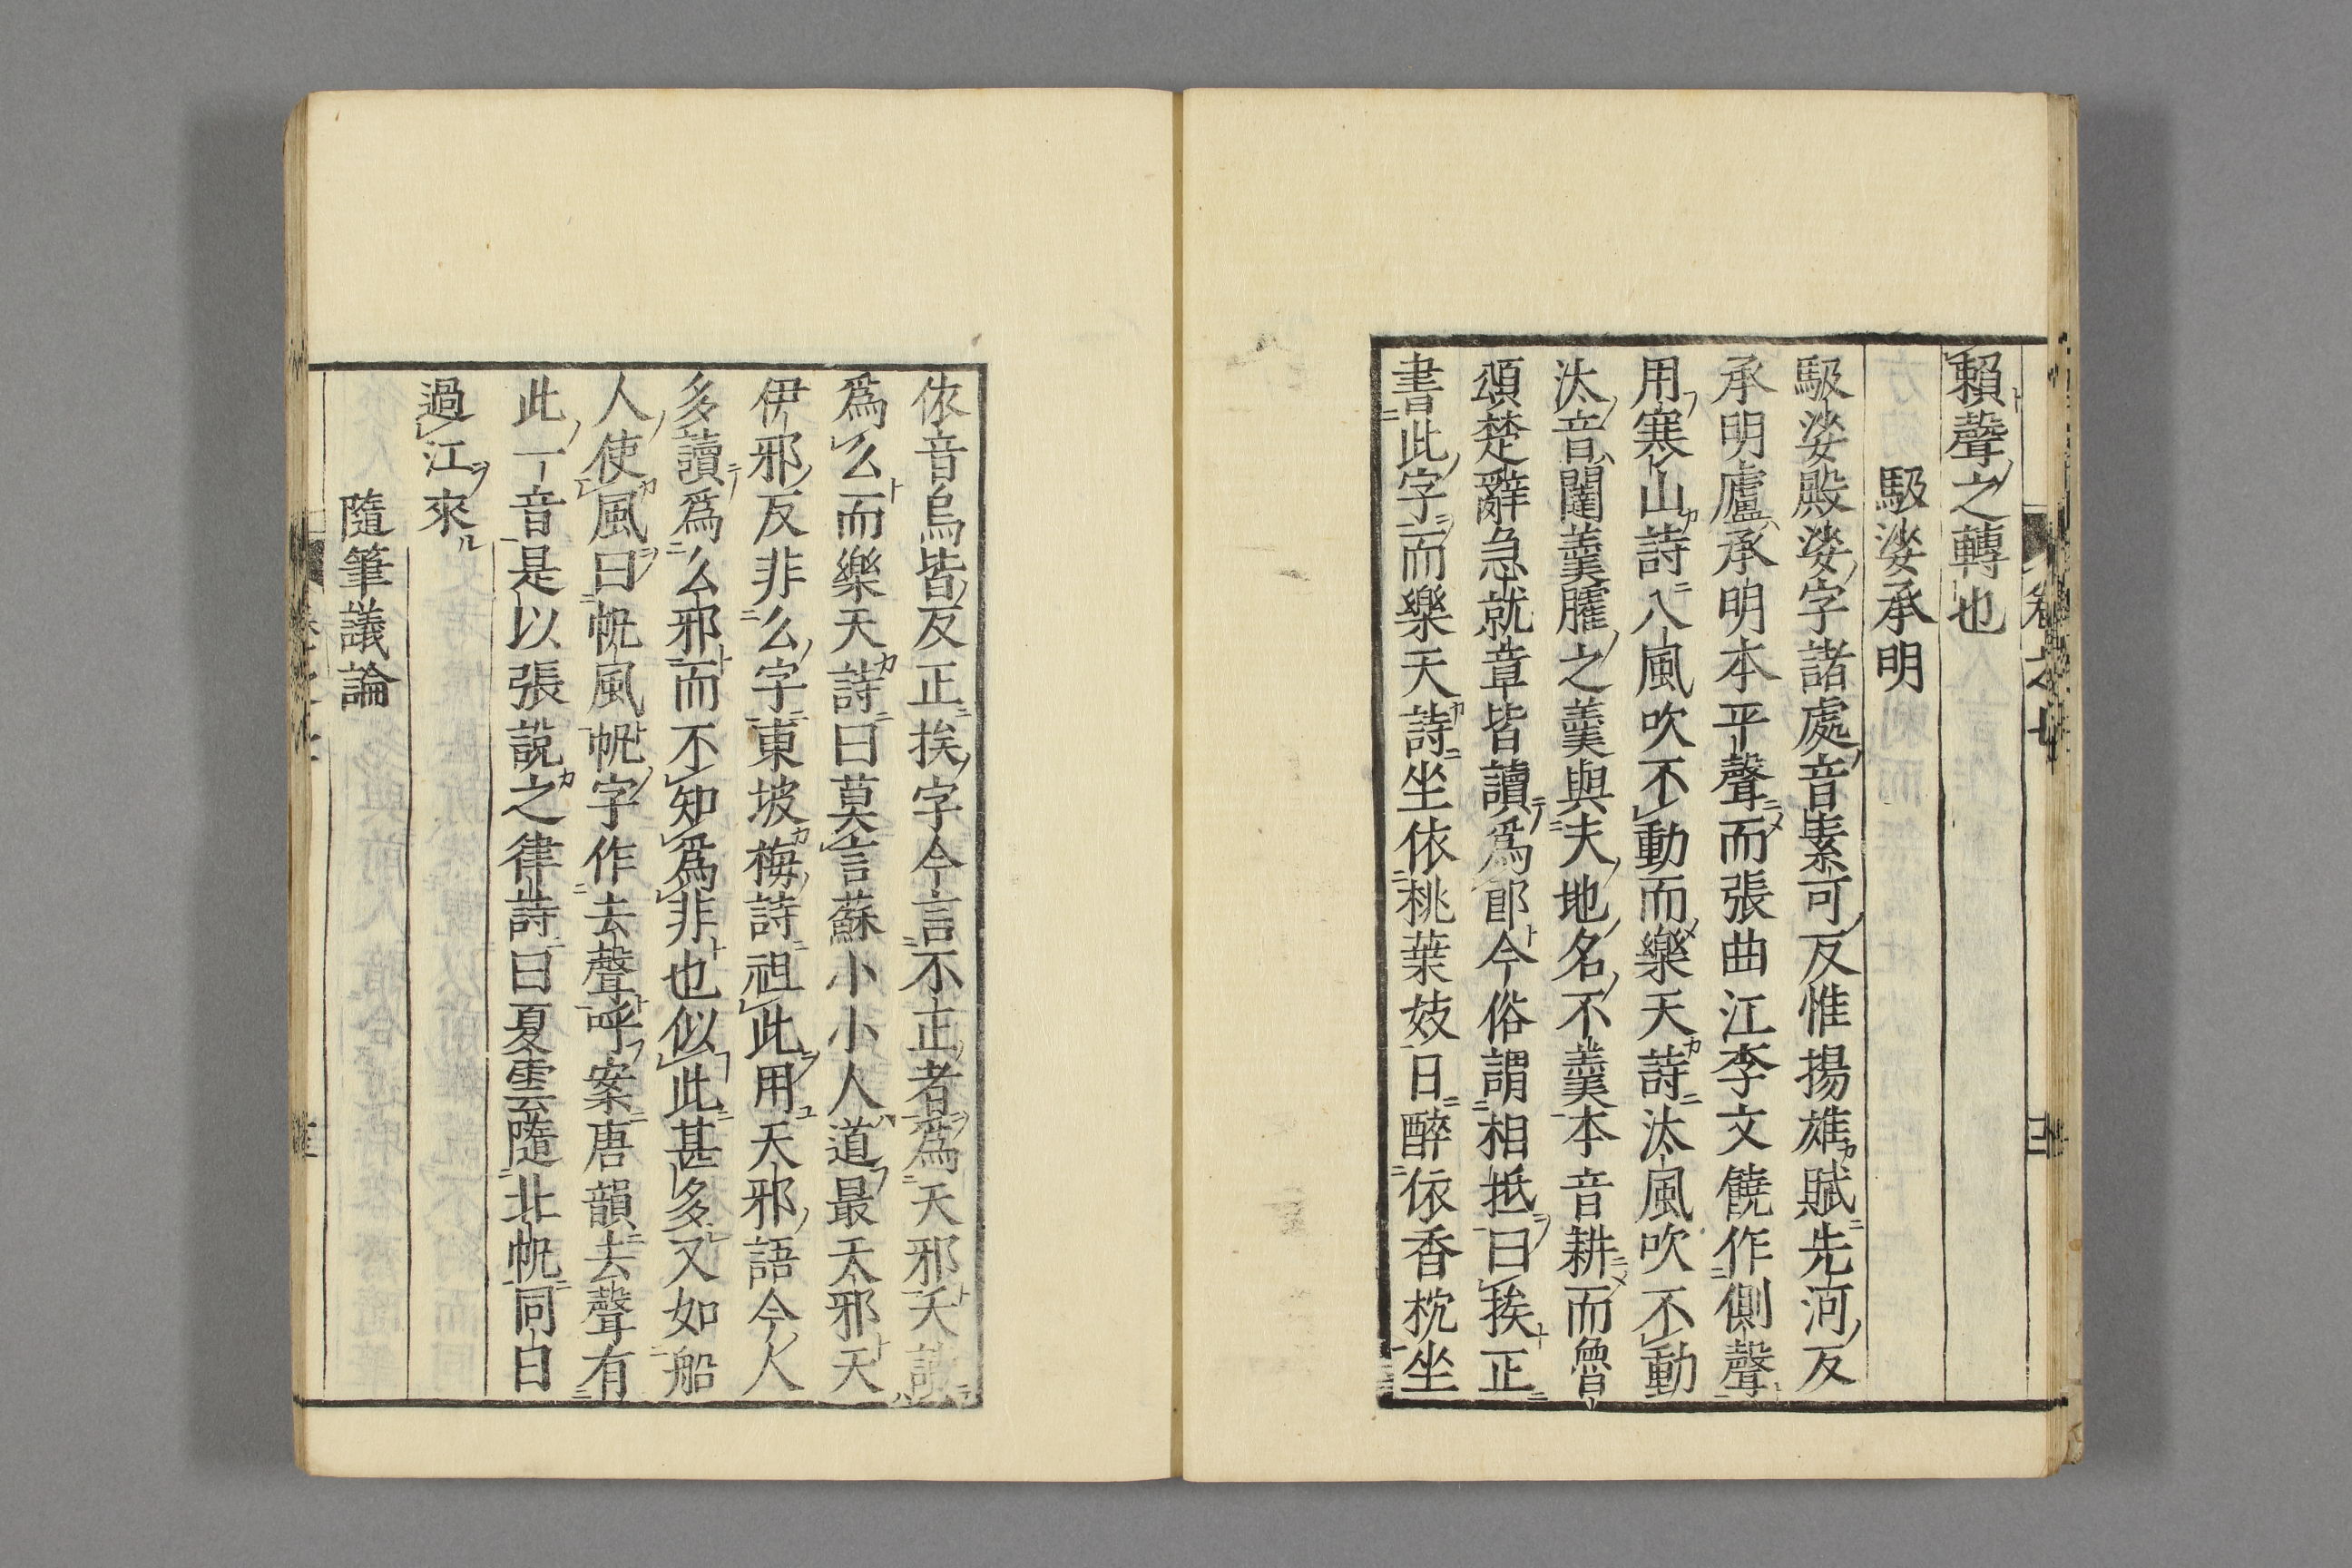 賴聲之轉也
馺娑承明
馺娑殿娑字諸處音素可反惟揚雄賦先河反
承明廬承明本平聲而張曲江李文饒作側聲
用寒山詩八風吹不動而樂天詩汰風吹不動
汰音闥羹臛之羹與夫地名不羹本音耕而魯
頌楚辭急就章皆讀爲郎今俗謂相抵曰挨正
書此字而樂天詩坐依桃葉妓日醉依香枕坐
依音烏皆反正挨字今言不正者爲天邪天讀
爲么而樂天詩曰莫言蘇小小人道最夭邪夭
伊邪反非么字東坡梅詩祖此用天邪語今人
多讀爲么邪而不知爲非也似此甚多又如船
人使風曰帆風帆字作去聲呼案唐韻去聲有
此一音是以張說之律詩曰夏雲隨北帆同日
過江來
隨筆議論